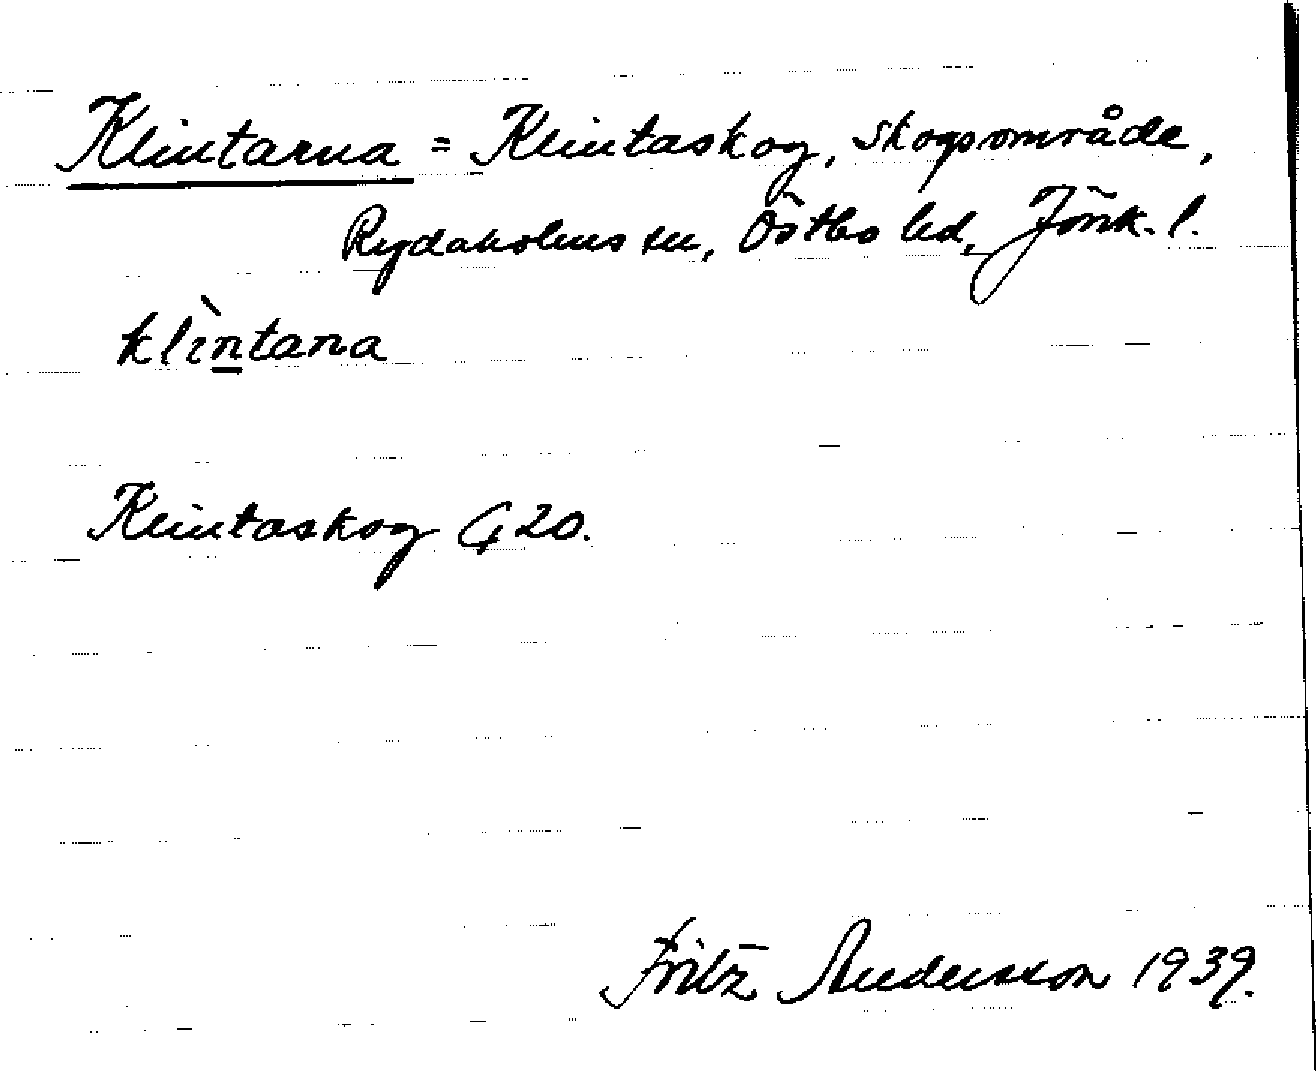 Klintarna = Klintaskog, skogsområde,
Rydaholms sn, Östbo hd, Jönk. l.
klìntana
Klintaskog G 20.
Fritz Andersson 1939.